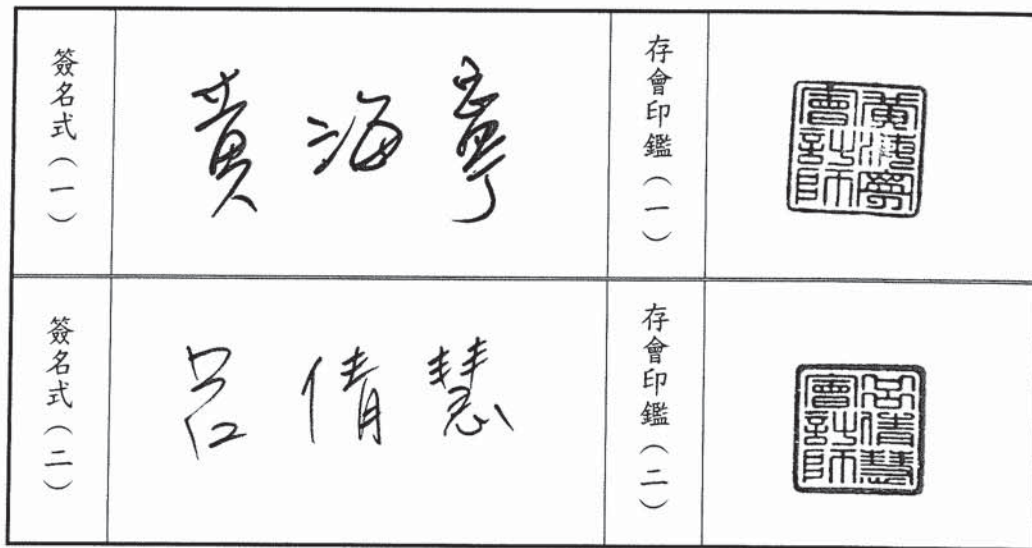 簽名式（一）
黃海寧
存會印鑑（一）
黃海寧會計師
簽名式（二）
呂倩慧
存會印鑑（二）
呂倩慧會計師